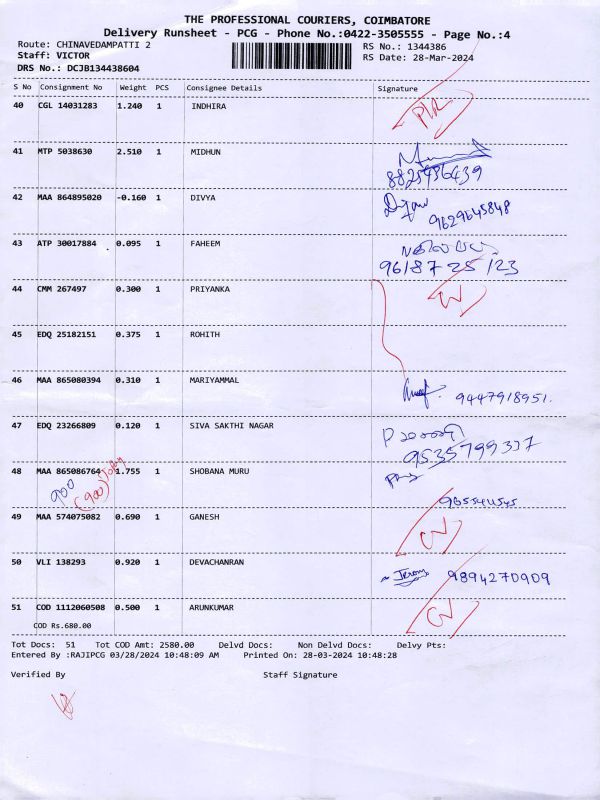 THE PROFESSIONAL COURIERS, COIMBATORE
Delivery Runsheet - PCG - Phone No.:0422-3505555 - Page No.:4
Route: CHINAVEDAMPATTI 2 RS No.: 1344386
Staff: VICTOR RS Date: 28-Mar-2024
DRS No.: DCJB134438604
S No Consignment No Weight PCS Consignee Details Signature
40 CGL 14031283 1.240 1 INDHIRA
41 MTP 5038630 2.510 1 MIDHUN
8825936439
42 MAA 864895020 -0.160 1 DIVYA
9629645848
43 ATP 30017884 0.095 1 FAHEEM
96187 25 123
44 CMM 267497 0.300 1 PRIYANKA
45 EDQ 25182151 0.375 1 ROHITH
46 MAA 865080394 0.310 1 MARIYAMMAL
9447918951.
47 EDQ 23266809 0.120 1 SIVA SAKTHI NAGAR
9535799337
48 MAA 865086764 1.755 1 SHOBANA MURU
900 (900)
49 MAA 574075082 0.690 1 GANESH
50 VLI 138293 0.920 1 DEVACHANRAN
9894270909
51 COD 1112060508 0.500 1 ARUNKUMAR
COD Rs.680.00
Tot Docs: 51 Tot COD Amt: 2580.00 Delvd Docs: Non Delvd Docs: Delvy Pts:
Entered By :RAJIPCG 03/28/2024 10:48:09 AM Printed On: 28-03-2024 10:48:28
Verified By Staff Signature